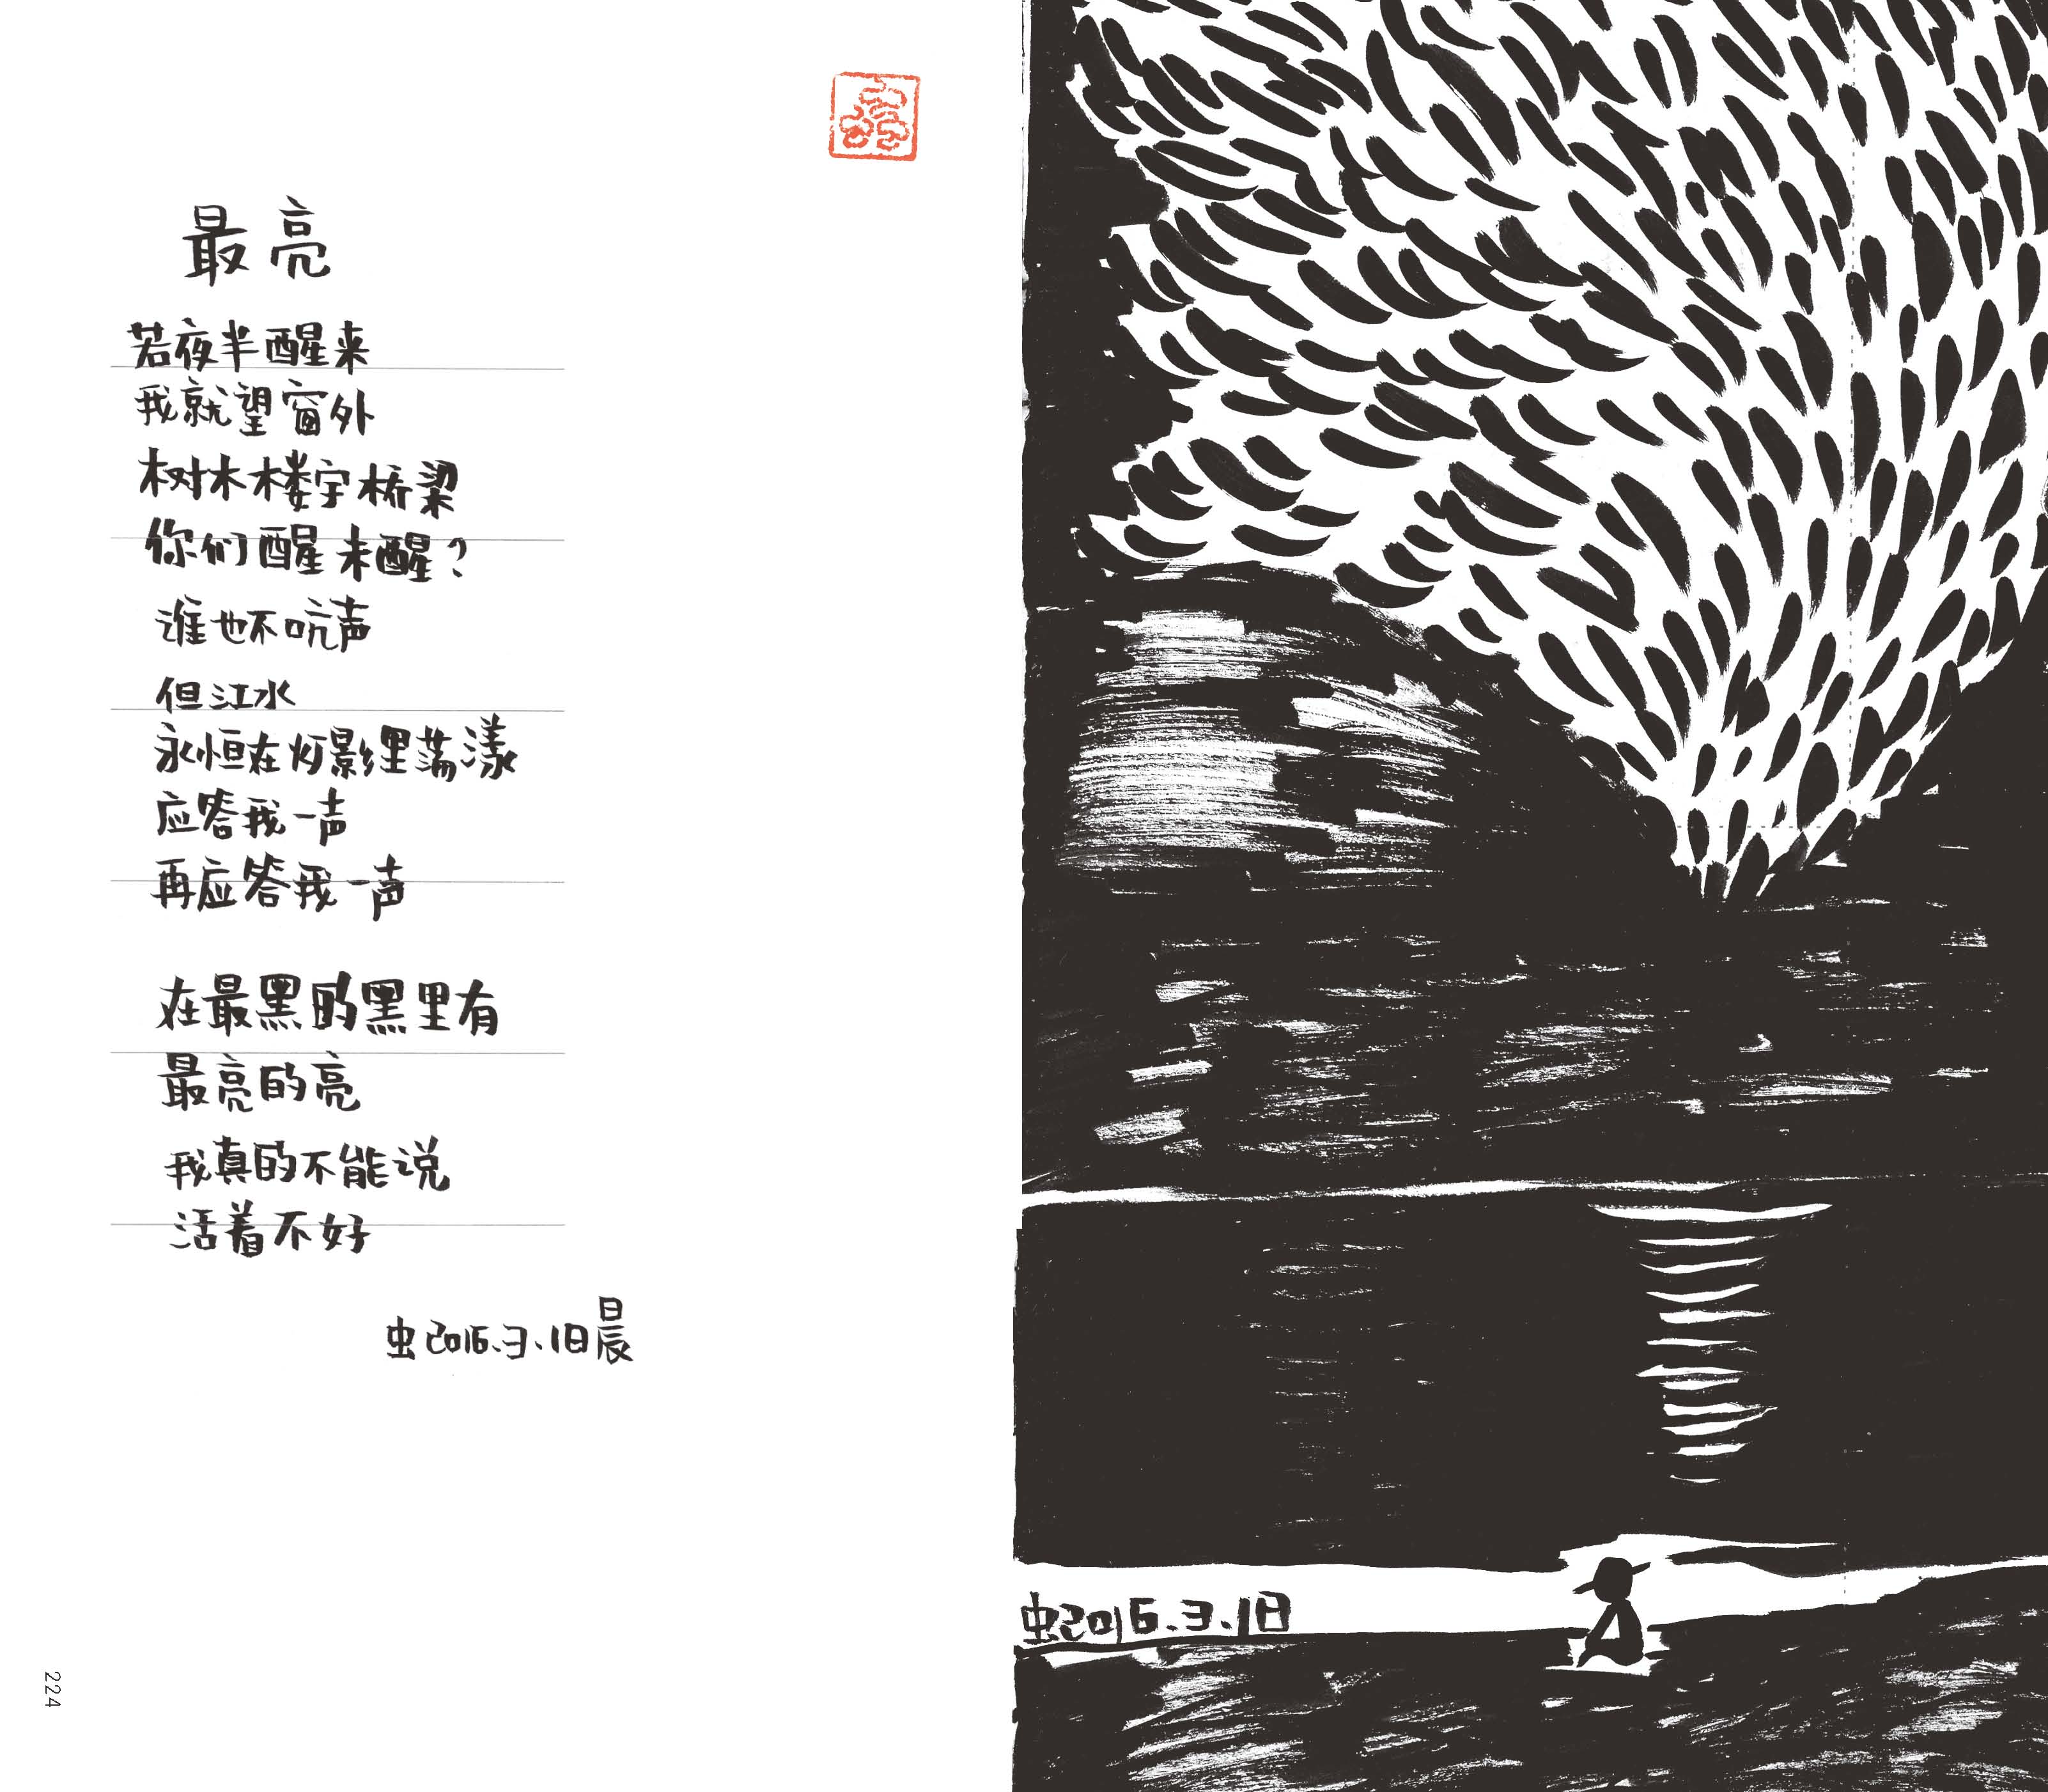 最亮
若夜半醒来
我就望窗外
树木楼宇桥梁
你们醒未醒？
谁也不吭声
但江水
永恒在灯影里荡漾
应答我一声
再应答我一声
在最黑的黑里有
最亮的亮
我真的不能说
活着不好
虫2016.3.1日晨
224
虫2016.3.1日